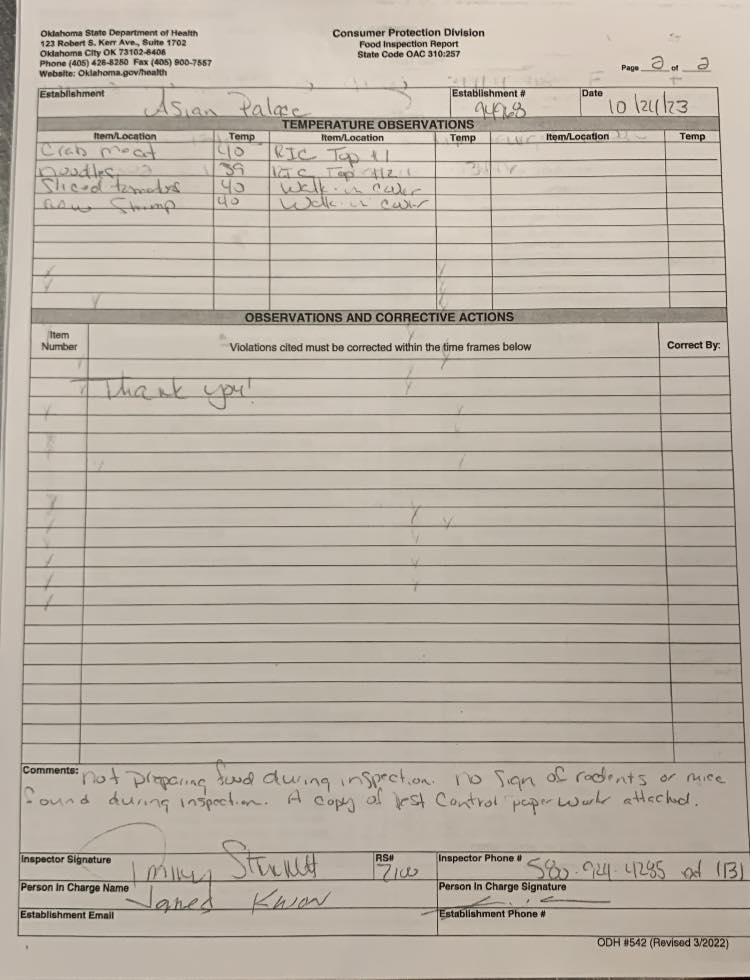 Oklahoma State Department of Health
123 Robert S. Kerr Ave., Suite 1702
Oklahoma City OK 73102-6406
Phone (405) 426-8250 Fax (405) 900-7557
Website: Oklahoma.gov/health
Consumer Protection Division
Food Inspection Report
State Code OAC 310:257
Page 2 of 2
Establishment Asian Palace Establishment # 94968 Date 10/24/23
TEMPERATURE OBSERVATIONS
Item/Location Temp Item/Location Temp Item/Location Temp
Crab meat 40 RIC Top #1
noodles 39 Top #2
Sliced tomatos 40 Walk-in cooler
raw Shrimp 40 Walk-in cooler
OBSERVATIONS AND CORRECTIVE ACTIONS
Item Number Violations cited must be corrected within the time frames below Correct By:
Thank you!
Comments: not preparing food during inspection. no sign of rodents or mice
found during inspection. A copy of Pest Control paperwork attached.
Inspector Signature RS# Inspector Phone # 580.924.4285
Person In Charge Name Jared Kwon Person In Charge Signature
Establishment Email Establishment Phone #
ODH #542 (Revised 3/2022)